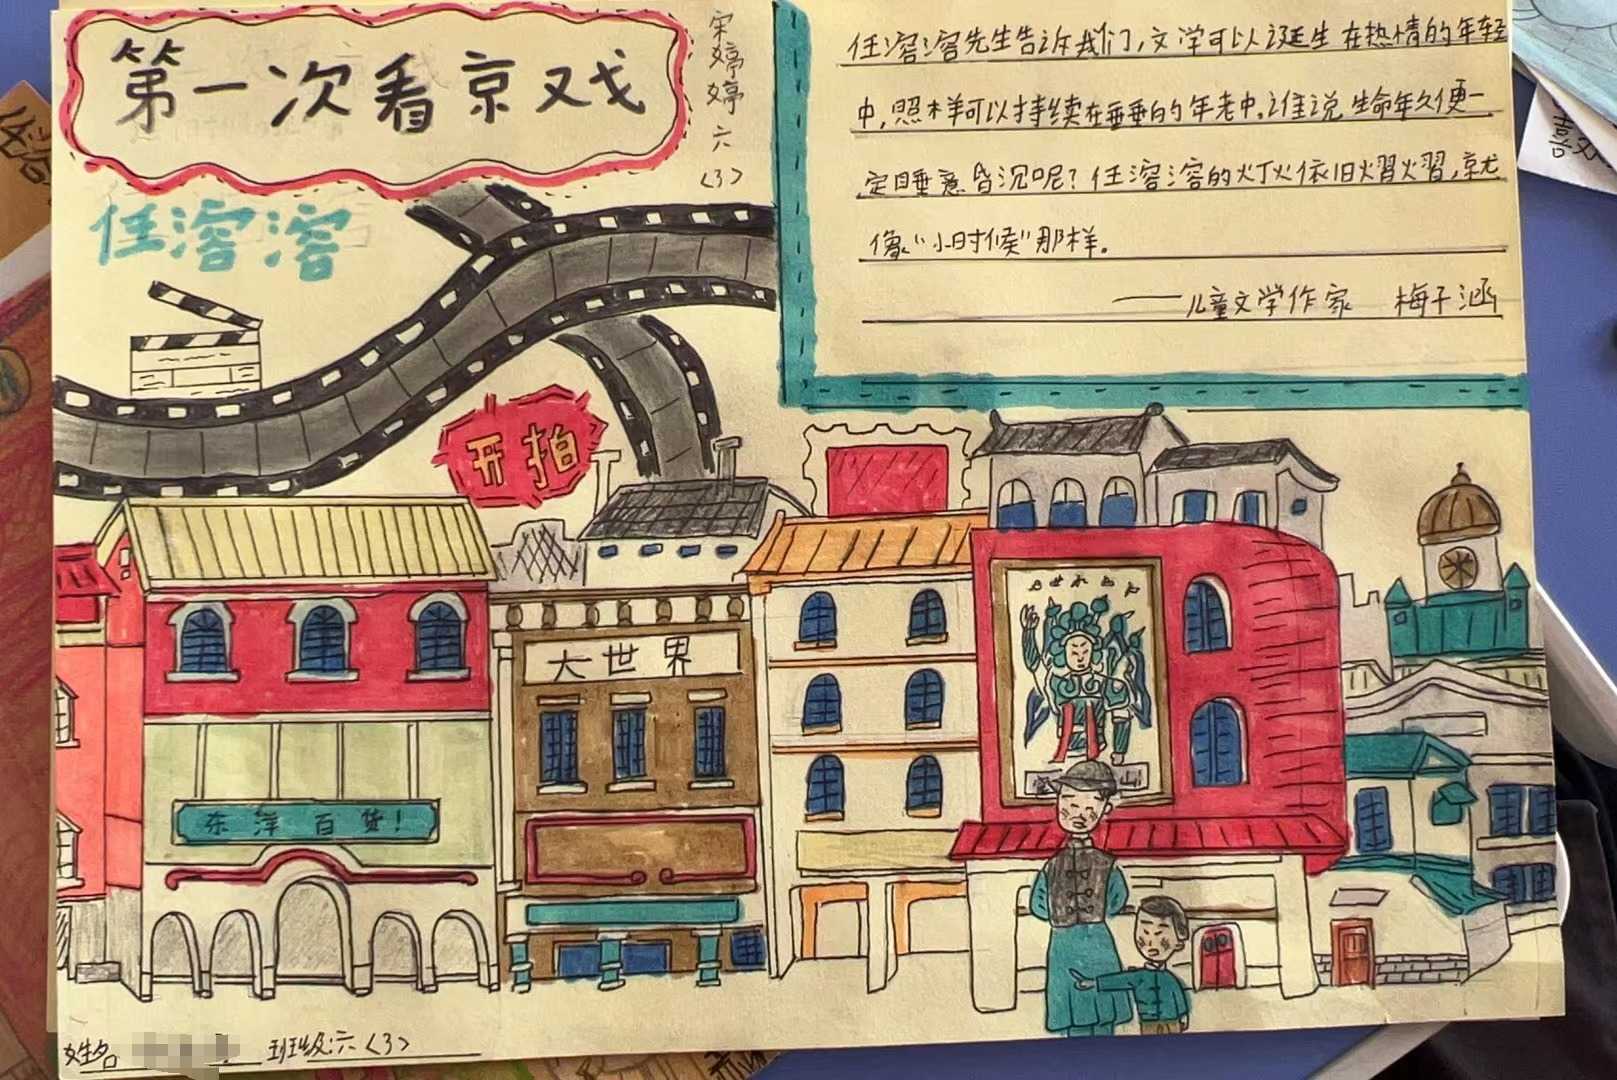 第一次看京戏
宋婷婷六〈3〉
任溶溶
任溶溶先生告诉我们，文学可以诞生在热情的年轻
中，照样可以持续在垂垂的年老中。谁说生命年久便一
定睡意昏沉呢？任溶溶的灯火依旧熠熠，就
像“小时候”那样。
——儿童文学作家 梅子涵
开拍
大世界
东洋百货！
姓名 班级六〈3〉